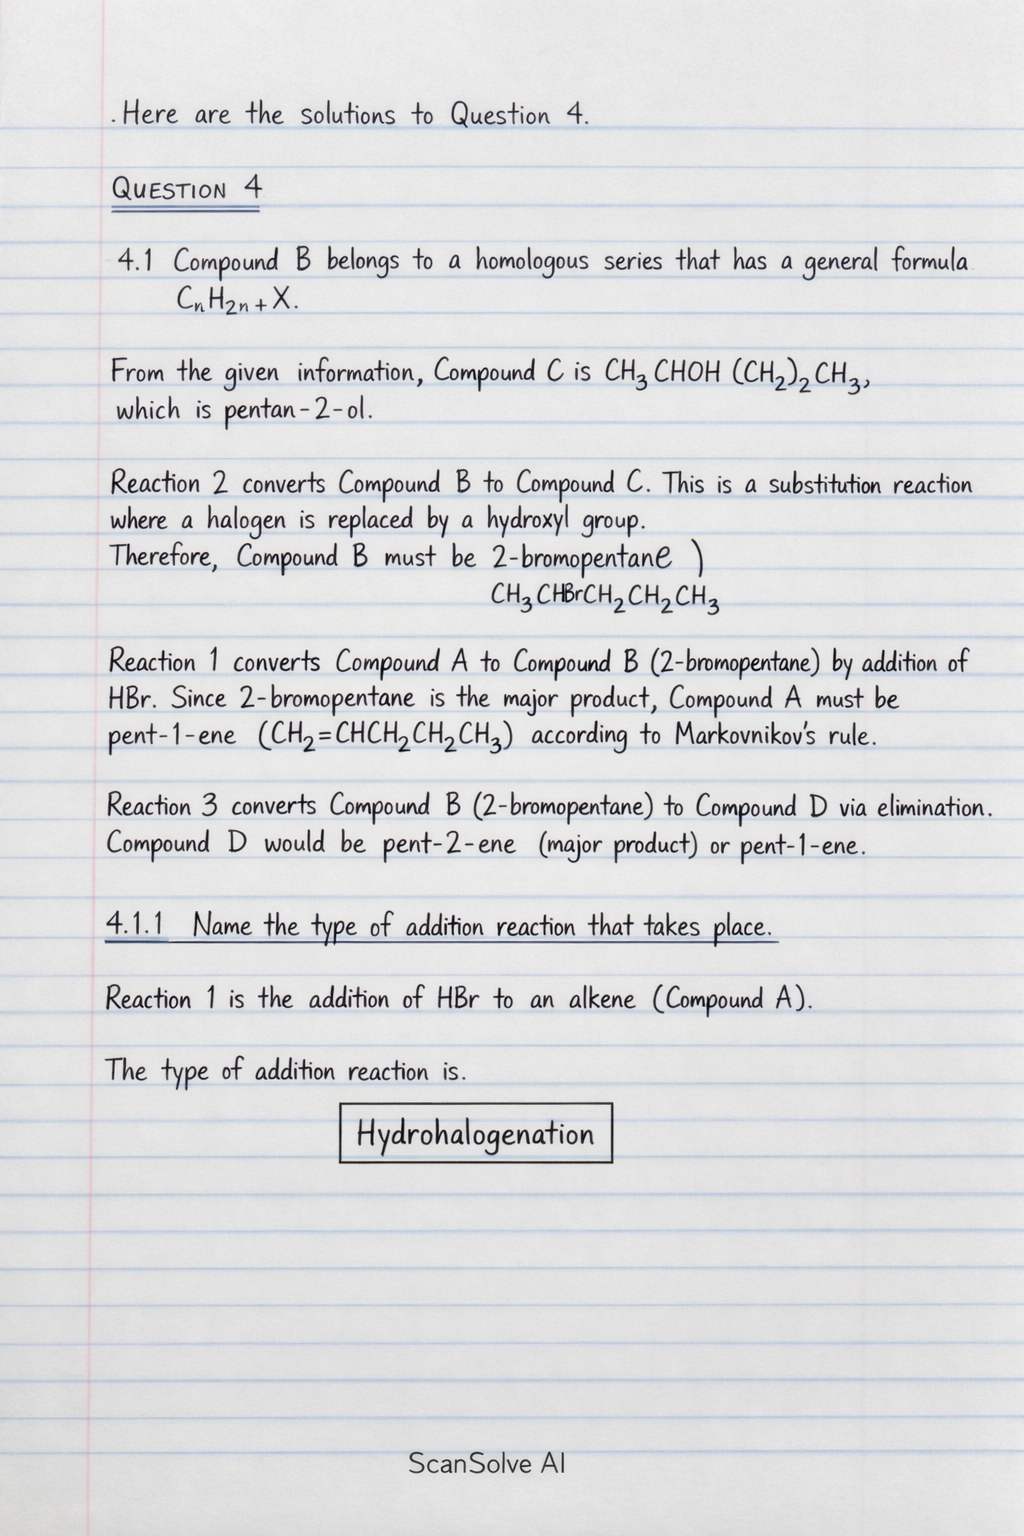 . Here are the solutions to Question 4.
QUESTION 4
4.1 Compound B belongs to a homologous series that has a general formula
CₙH₂ₙ + X.
From the given information, Compound C is CH₃CHOH(CH₂)₂CH₃,
which is pentan-2-ol.
Reaction 2 converts Compound B to Compound C. This is a substitution reaction
where a halogen is replaced by a hydroxyl group.
Therefore, Compound B must be 2-bromopentane )
CH₃CHBrCH₂CH₂CH₃
Reaction 1 converts Compound A to Compound B (2-bromopentane) by addition of
HBr. Since 2-bromopentane is the major product, Compound A must be
pent-1-ene (CH₂=CHCH₂CH₂CH₃) according to Markovnikov's rule.
Reaction 3 converts Compound B (2-bromopentane) to Compound D via elimination.
Compound D would be pent-2-ene (major product) or pent-1-ene.
4.1.1 Name the type of addition reaction that takes place.
Reaction 1 is the addition of HBr to an alkene (Compound A).
The type of addition reaction is.
Hydrohalogenation
ScanSolve AI